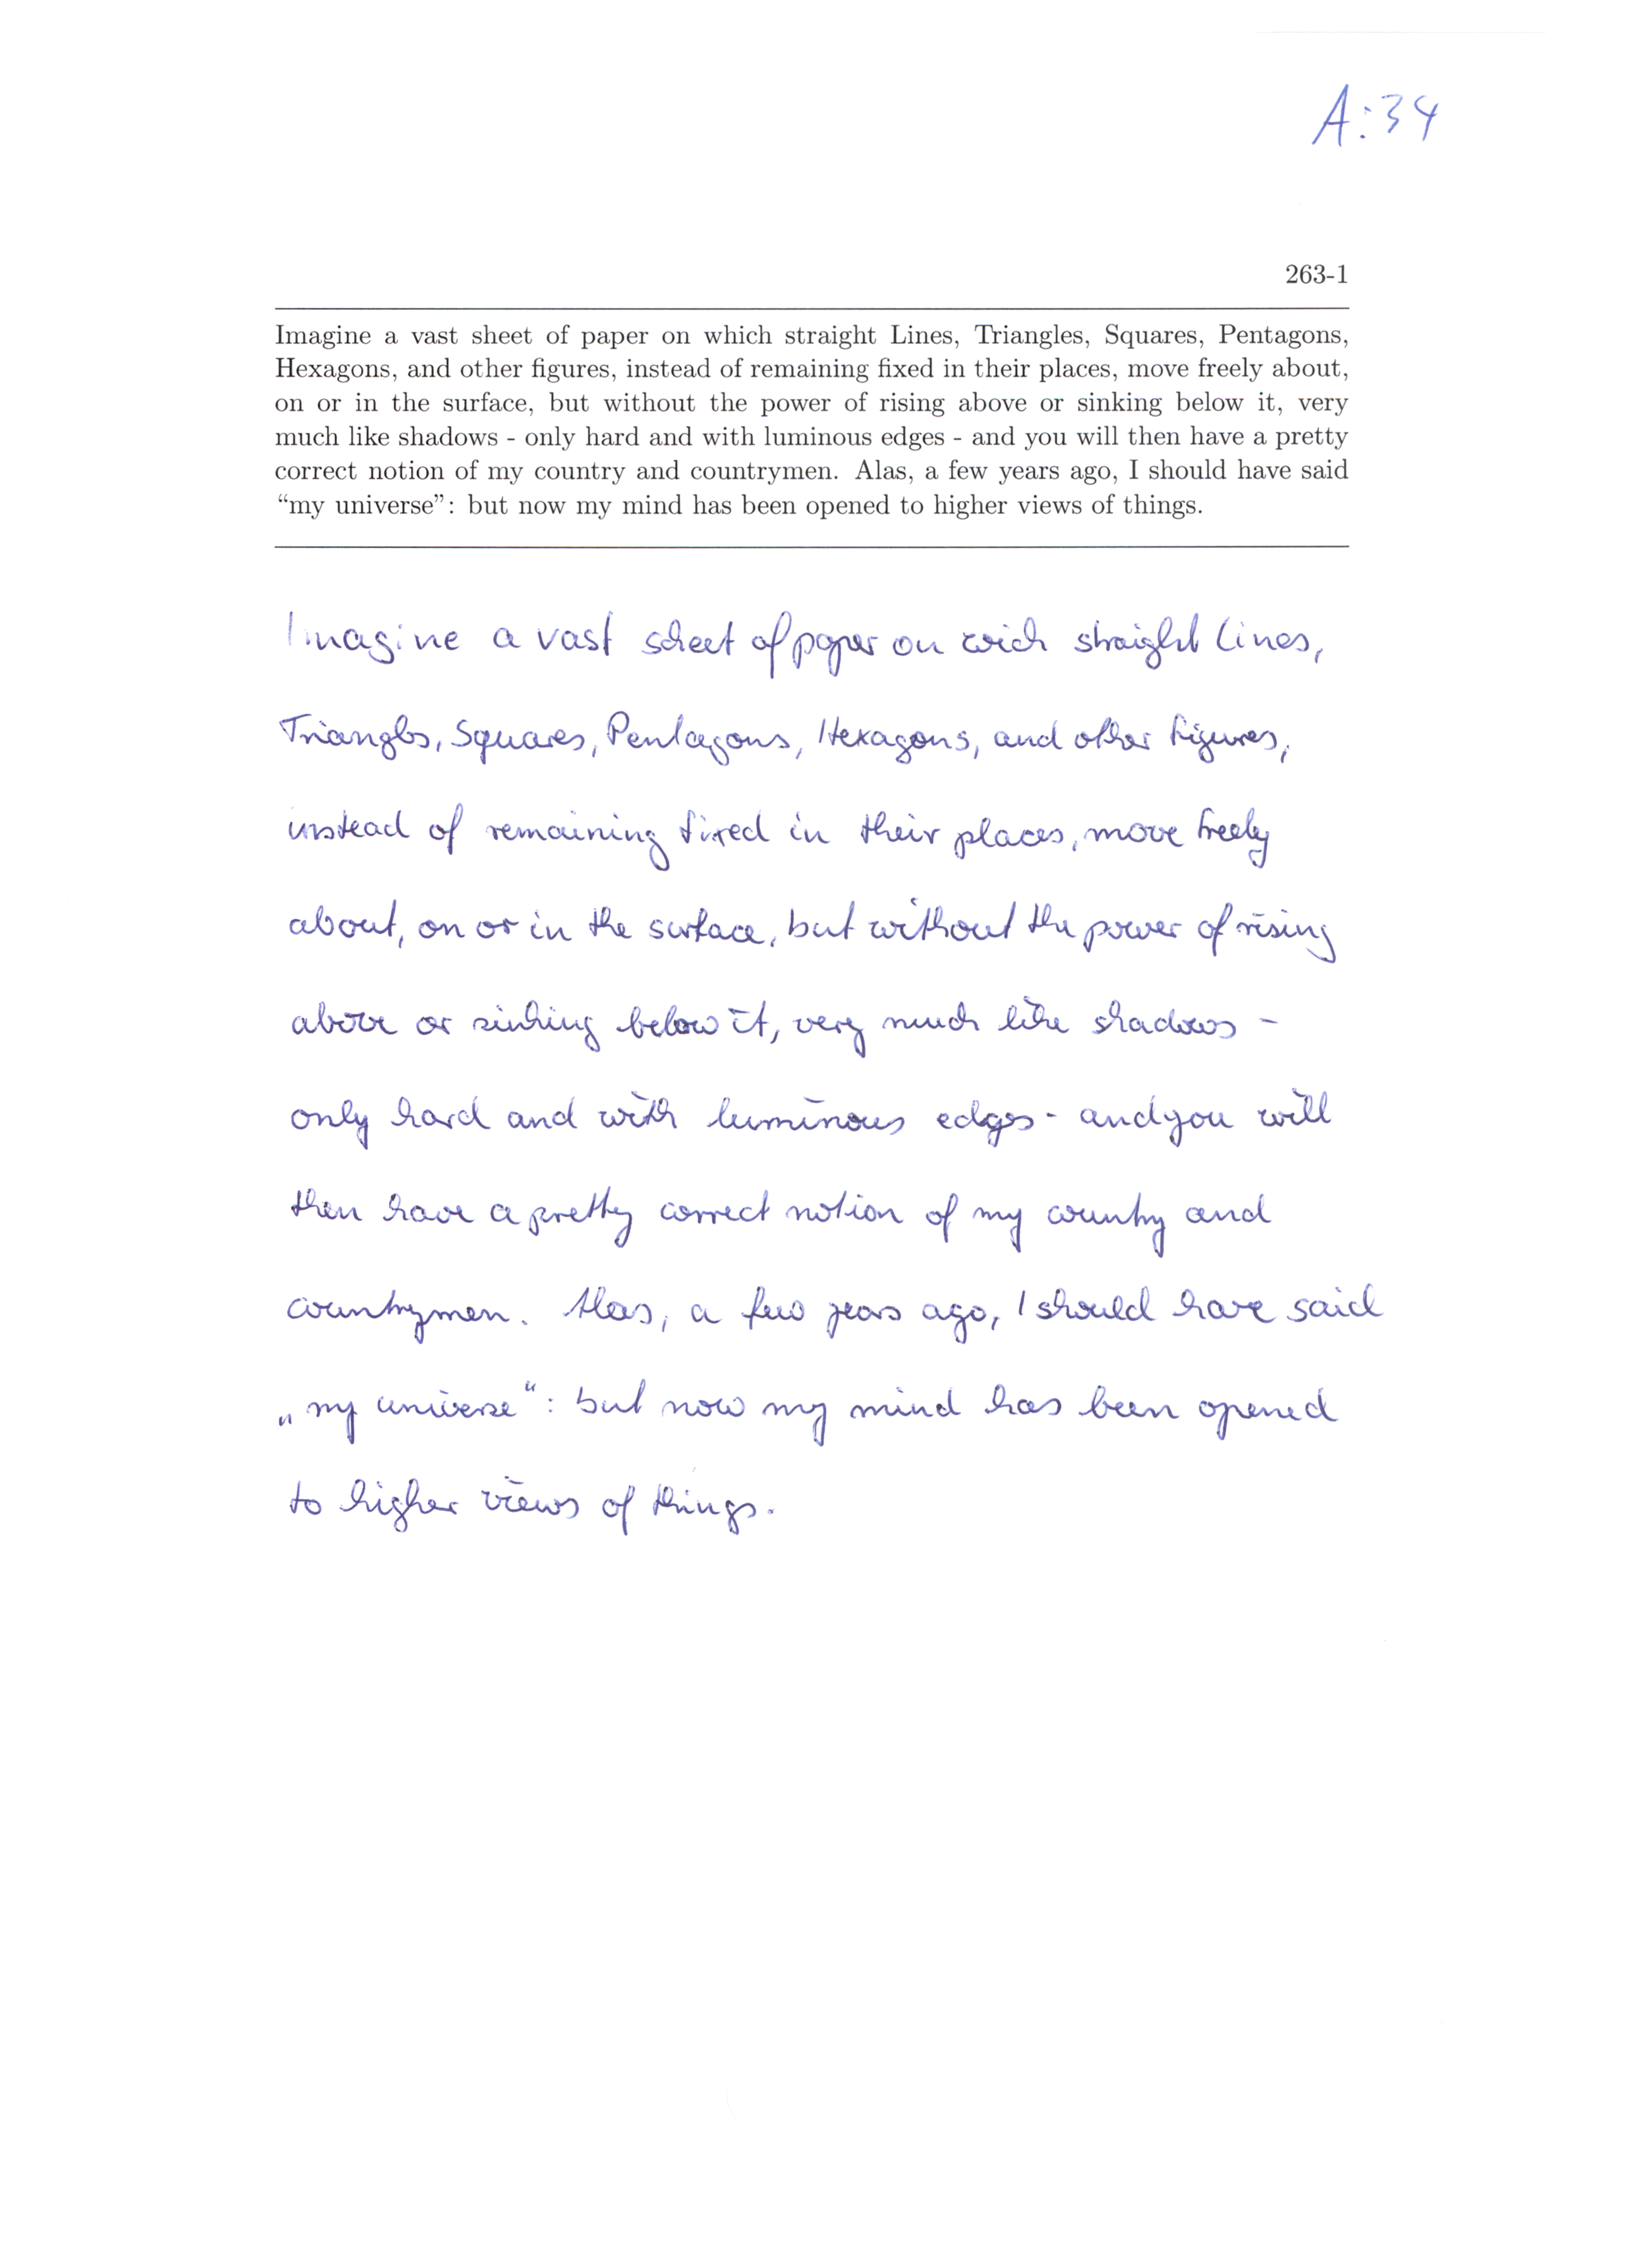 A:34
263-1
Imagine a vast sheet of paper on which straight Lines, Triangles, Squares, Pentagons,
Hexagons, and other figures, instead of remaining fixed in their places, move freely about,
on or in the surface, but without the power of rising above or sinking below it, very
much like shadows - only hard and with luminous edges - and you will then have a pretty
correct notion of my country and countrymen. Alas, a few years ago, I should have said
“my universe”: but now my mind has been opened to higher views of things.
Imagine a vast scheet of paper on wich straight Lines,
Triangles, Squares, Pentagons, Hexagons, and other figures,
instead of remaining fixed in their places, move freely
about, on or in the surface, but without the power of rising
above or sinking below it, very much like shadows -
only hard and with luminous edges - and you will
then have a pretty correct notion of my country and
countrymen. Alas, a few years ago, I should have said
„my universe“: but now my mind has been opened
to higher views of things.